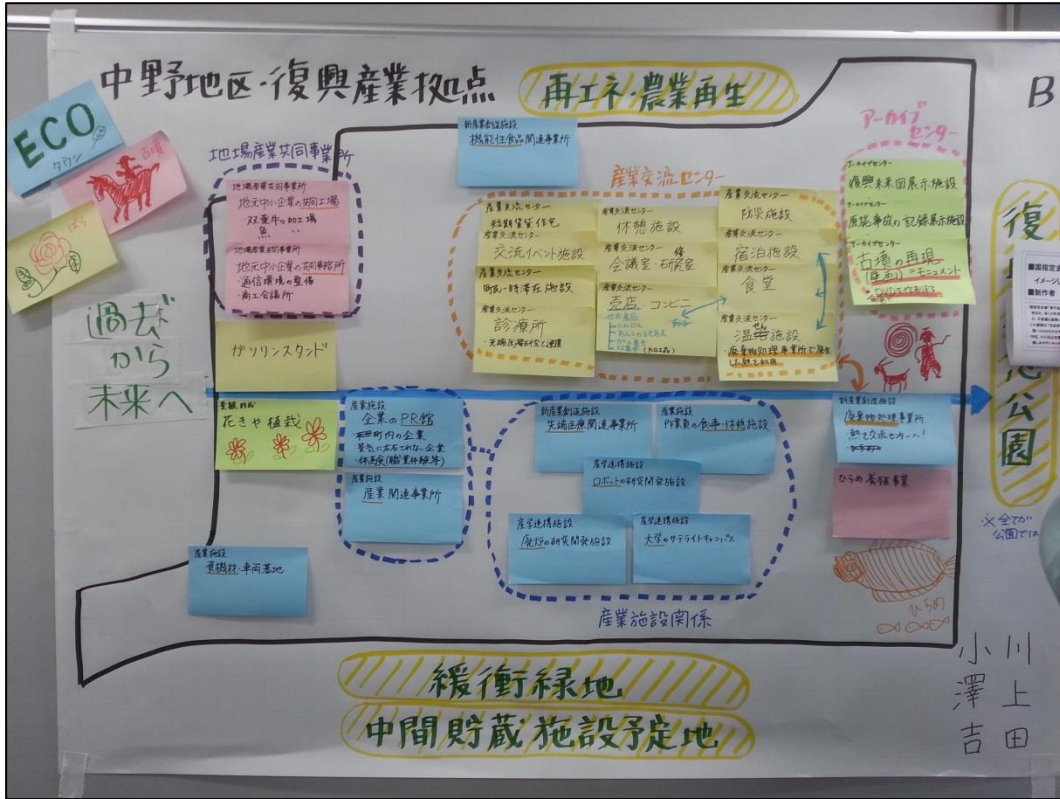 中野地区・復興産業拠点
再エネ・農業再生
B
ECO
タウン
古墳
ばら
過去
から
未来へ
地場産業共同事業所
地場産業共同事業所
地元中小企業の共同工場
・双葉牛の加工場
魚 〃
地場産業共同事業所
地元中小企業の共同事務所
・通信環境の整備
・商工会議所
ガソリンスタンド
新産業創造施設
機能性食品関連事業所
産業交流センター
産業交流センター
短期賃貸住宅
産業交流センター
交流イベント施設
産業交流センター
町民一時滞在施設
産業交流センター
診療所
・先端医療研究で連携
産業交流センター
休憩施設
産業交流センター
会議室・研究室
修
産業交流センター
売店・コンビニ
産業交流センター
防災施設
産業交流センター
宿泊施設
産業交流センター
食堂
産業交流センター
温せん施設
・廃棄物処理事業所で発生
した熱を利用
アーカイブ
センター
アーカイブセンター
復興未来図展示施設
アーカイブセンター
原発事故の記録展示施設
アーカイブセンター
古墳の再現
(壁画)=モニュメント
景観形成
花きや植栽
産業施設
企業のPR館
町内の企業
景気に左右されない企業
・体験(職業体験等)
産業施設
産業関連事業所
新産業創造施設
先端医療関連事業所
作業員の食事・休憩施設
産学連携施設
ロボットの研究開発施設
産学連携施設
廃炉の研究開発施設
産学連携施設
大学のサテライトキャンパス
産業施設関係
新産業創造施設
廃棄物処理事業所
熱を交流センターへ!
ひらめ養殖事業
ひらめ
産業施設
資機材・車両基地
緩衝緑地
中間貯蔵施設予定地
復
公園
※全てが
公園では
■国指定史
イメージし
■制作者
川上田
小澤吉